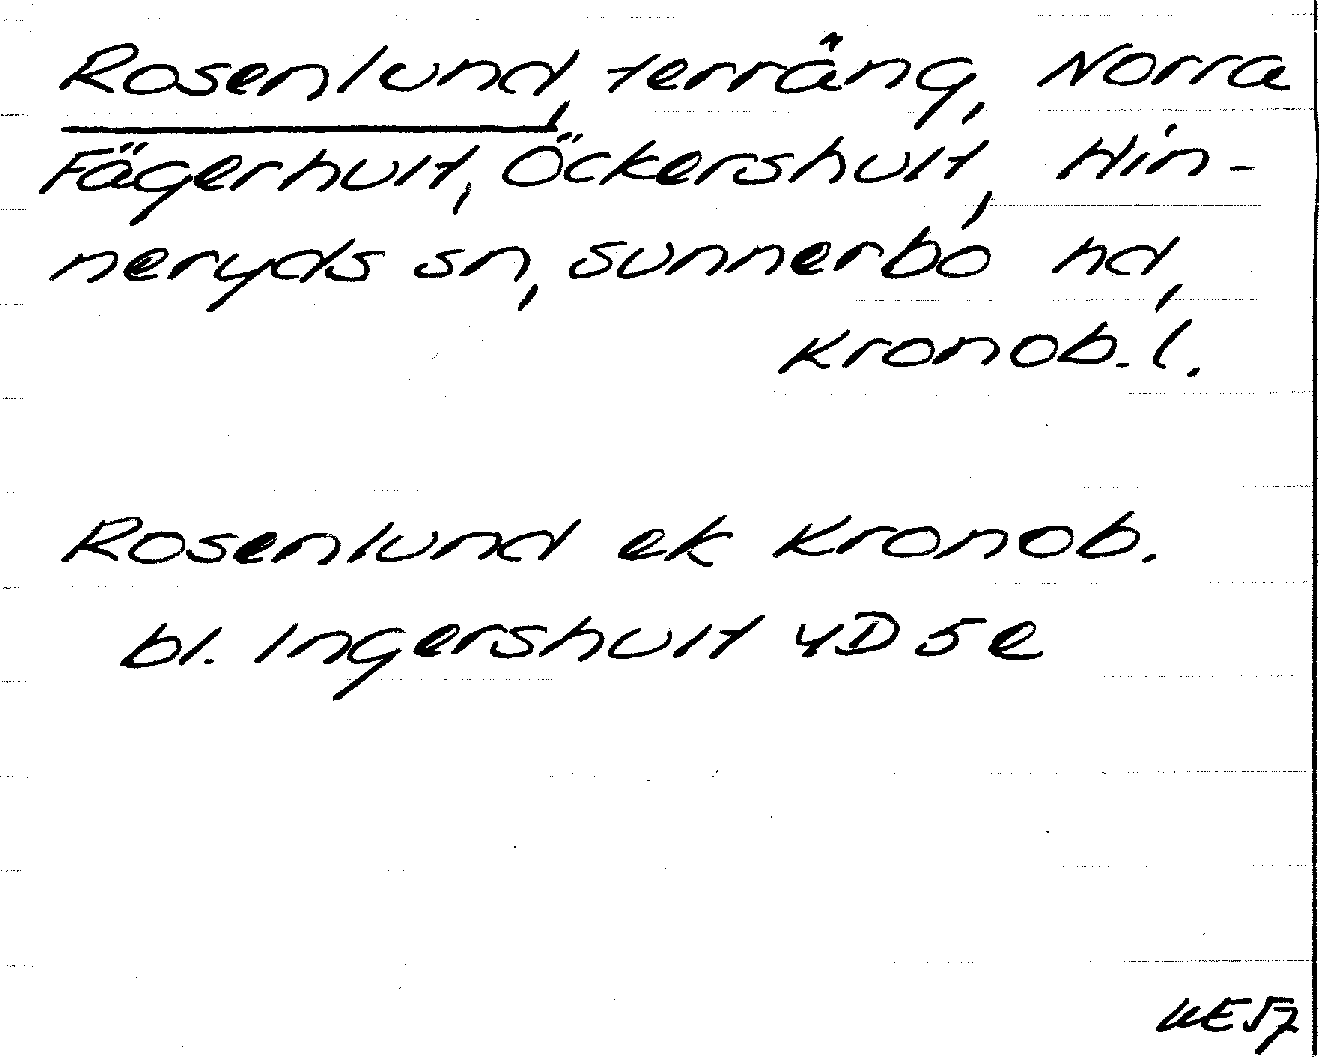 Rosenlund, terräng, Norra
Fägerhult, Öckershult, Hin-
neryds sn, Sunnerbo hd,
Kronob. l.
Rosenlund ek Kronob.
bl. Ingershult 4D 5e